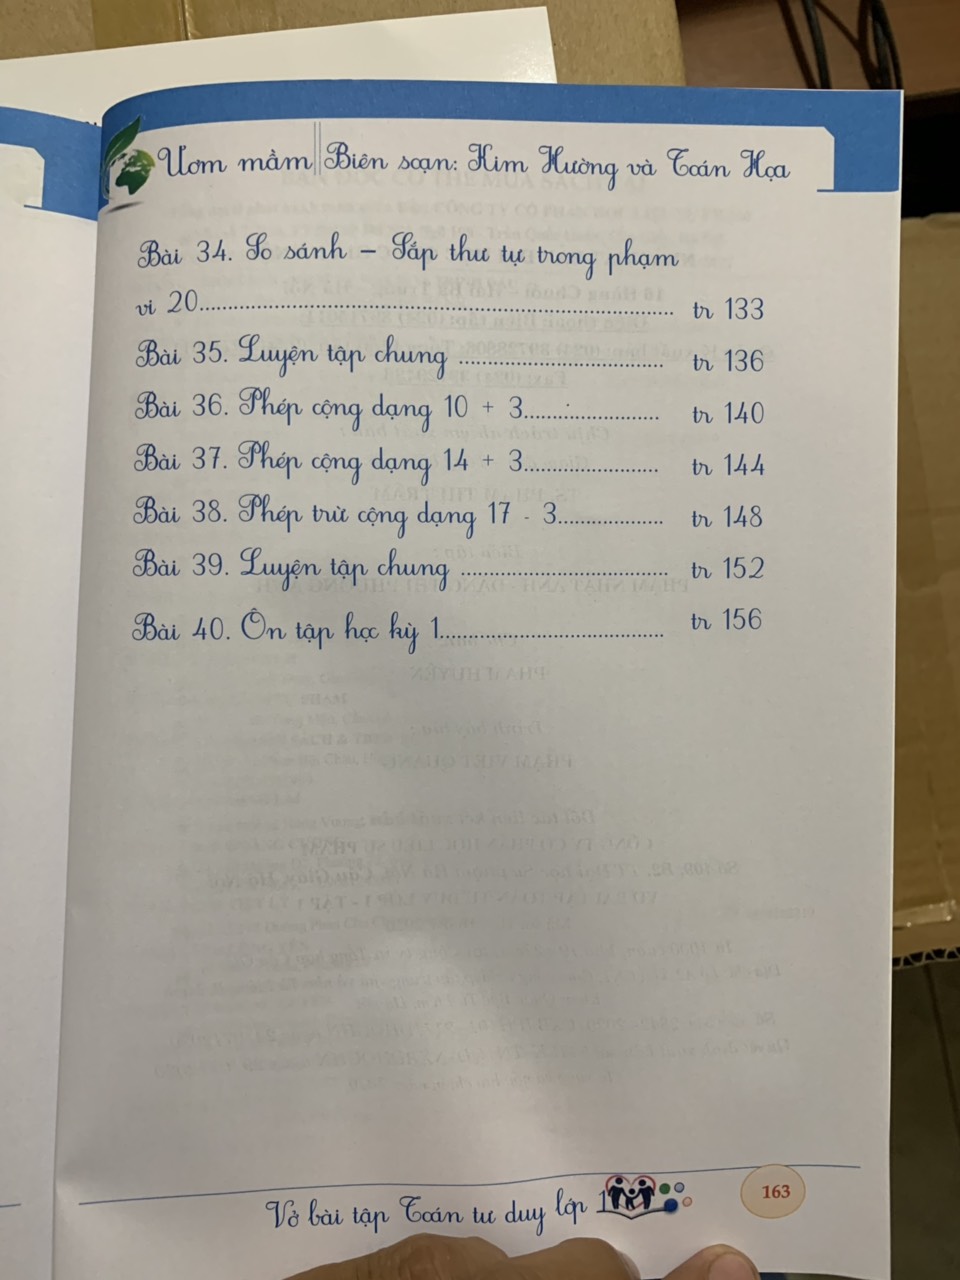 Ươm mầm Biên soạn: Kim Hường và Toán Họa
Bài 34. So sánh – Sắp thư tự trong phạm
vi 20........................................ tr 133
Bài 35. Luyện tập chung ........................ tr 136
Bài 36. Phép cộng dạng 10 + 3........................ tr 140
Bài 37. Phép cộng dạng 14 + 3........................ tr 144
Bài 38. Phép trừ cộng dạng 17 - 3.................. tr 148
Bài 39. Luyện tập chung ........................ tr 152
Bài 40. Ôn tập học kỳ 1........................ tr 156
Vở bài tập Toán tư duy lớp 1
163